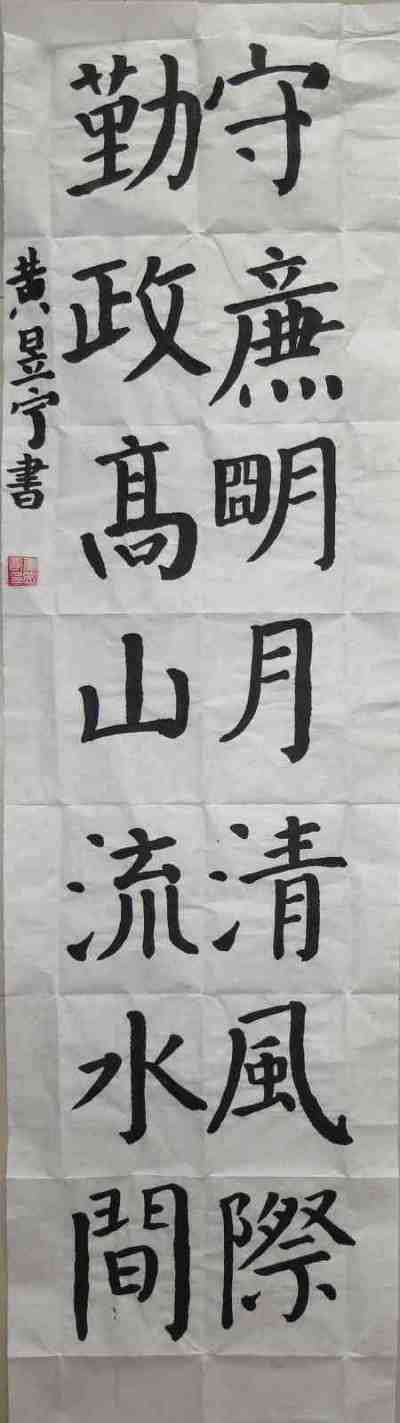 守廉明月清風際
勤政高山流水間
黄昱宁書